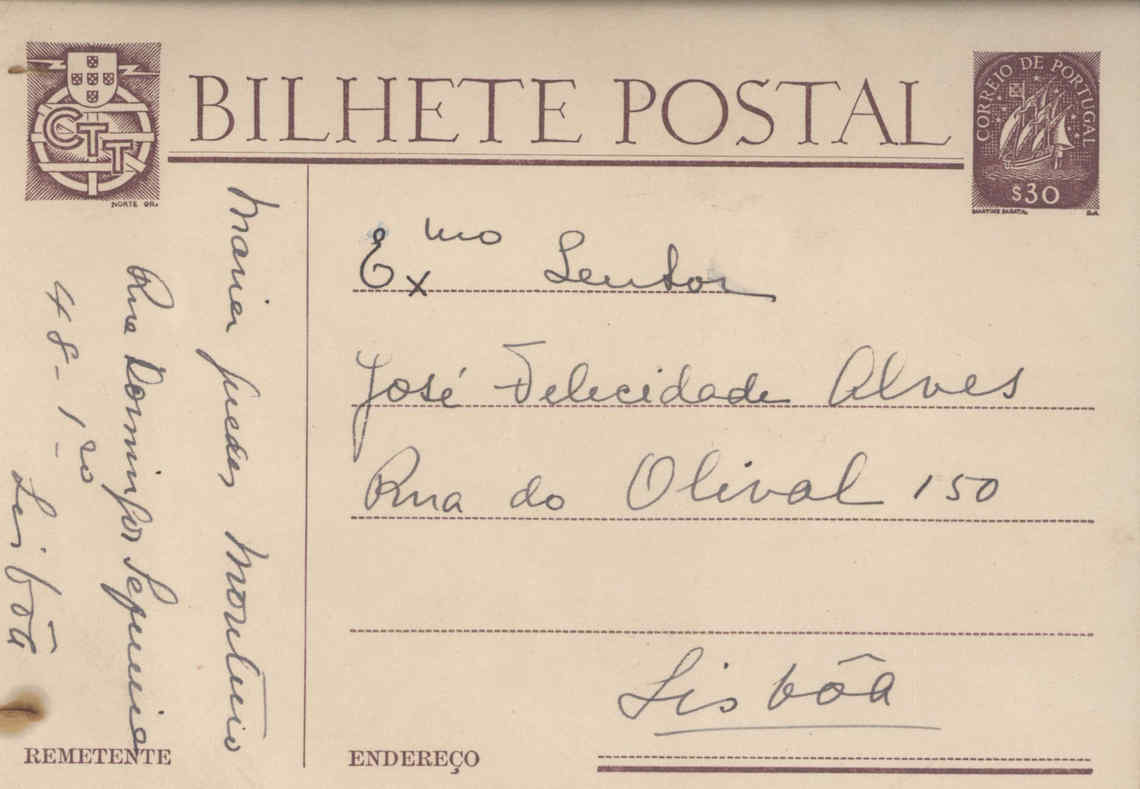 BILHETE POSTAL
CTT
NORTE GR.
CORREIO DE PORTUGAL
$30
MARTINS BARATA
Exmo Senhor
José Felecidade Alves
Rua do Olival 150
Lisbôa
Maria Guedes Monteiro
Rua Domingos Sequeira
48-1º
Lisbôa
REMETENTE
ENDEREÇO